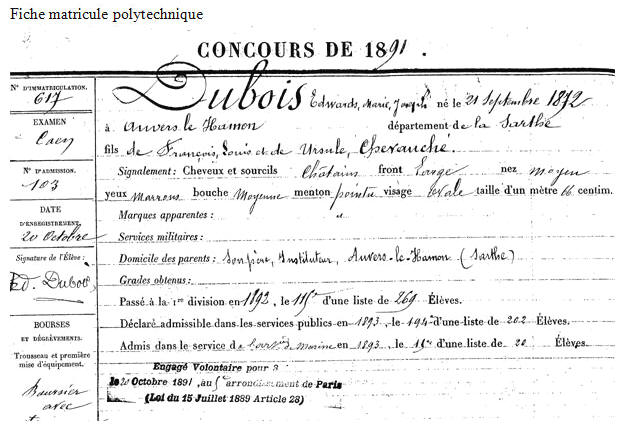 Fiche matricule polytechnique
CONCOURS DE 1891.
N° D'IMMATRICULATION.
617
EXAMEN
Caen
N° D'ADMISSION.
103
DATE
D'ENREGISTREMENT.
20 octobre
Signature de l'Élève:
Ed. Dubois
BOURSES
ET DÉGRÈVEMENTS.
Trousseau et première
mise d'équipement.
Boursier
avec
Dubois Edwards, Marie, Joseph né le 21 Septembre 1872
à Auvers le Hamon département de la Sarthe
fils de François, Louis et de Ursule, Chevauche.
Signalement: Cheveux et sourcils Chatains front Large nez moyen
yeux Marrons bouche Moyenne menton pointu visage Ovale taille d'un mètre 66 centim.
Marques apparentes: "
Services militaires:
Domicile des parents: Son père, Instituteur, Auvers-le-Hamon (Sarthe)
Grades obtenus:
Passé à la 1re division en 1892, le 115e d'une liste de 269 Élèves.
Déclaré admissible dans les services publics en 1893, le 194e d'une liste de 202 Élèves.
Admis dans le service de marine en 1893, le d'une liste de 20 Élèves.
Engagé Volontaire pour 3
le 20 Octobre 1891, au 5e arrondissement de Paris
(Loi du 15 Juillet 1889 Article 28)